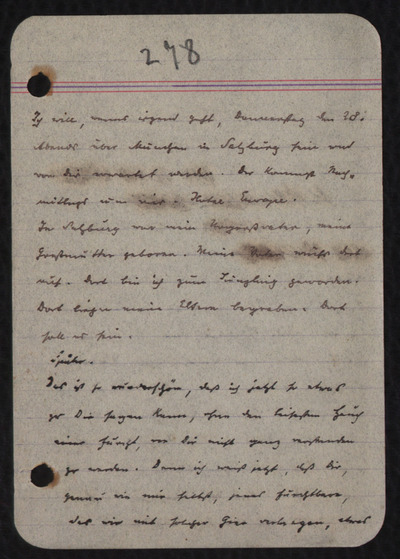 278
Ich will, wenns irgend geht, Donnerstag den 28.
Abends über München in Salzburg sein und
von Dir erwartet werden. Du kommst Nach-
mittags um
In Salzburg war mein Urgrossvater, meine
Grossmutter geboren. Mein Vater wuchs dort
auf. Dort bin ich zum Jüngling geworden.
Dort liegen meine Eltern begraben. Dort
soll es sein.
Später.
Das ist so wunderschön, daß ich jetzt so etwas
zu Dir sagen kann, ohne den leisesten Hauch
einer Furcht, von Dir nicht ganz verstanden
zu werden. Denn ich weiß jetzt, daß Dir,
genau wie mir selbst, jenes Furchtbare,
das wir mit solcher Gier verlangen, etwas